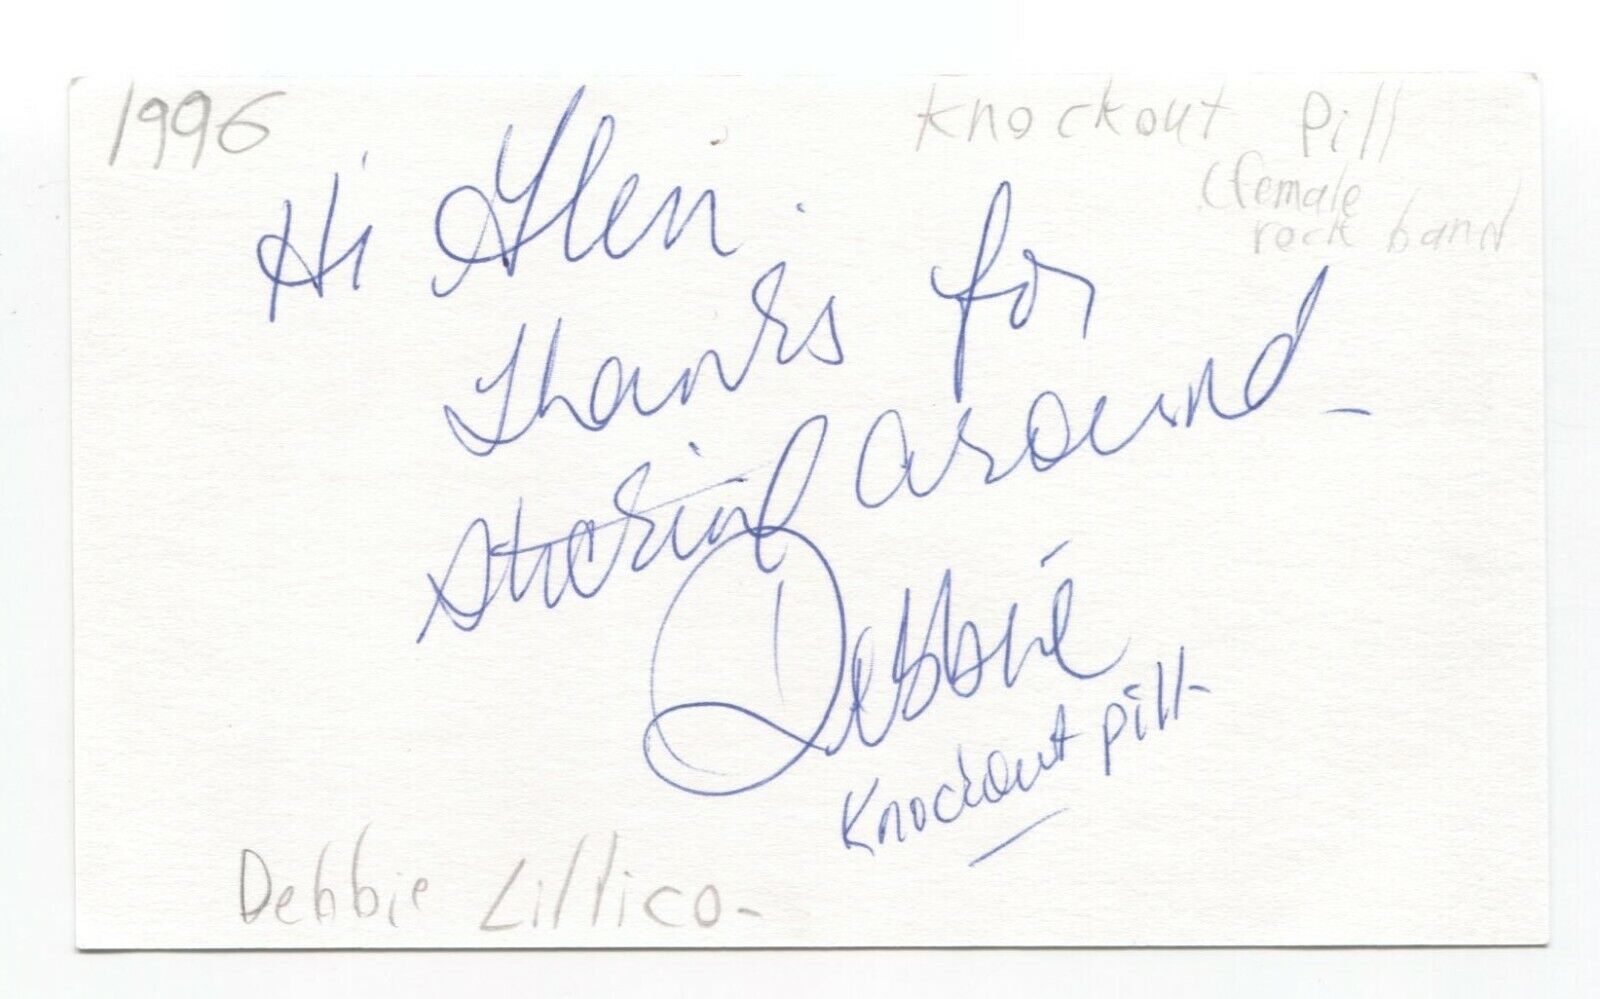 1996
Knockout Pill
(female
rock band
Hi Glen.
Thanks for
sticking around -
Debbie
Knockout pill -
Debbie Lillico -